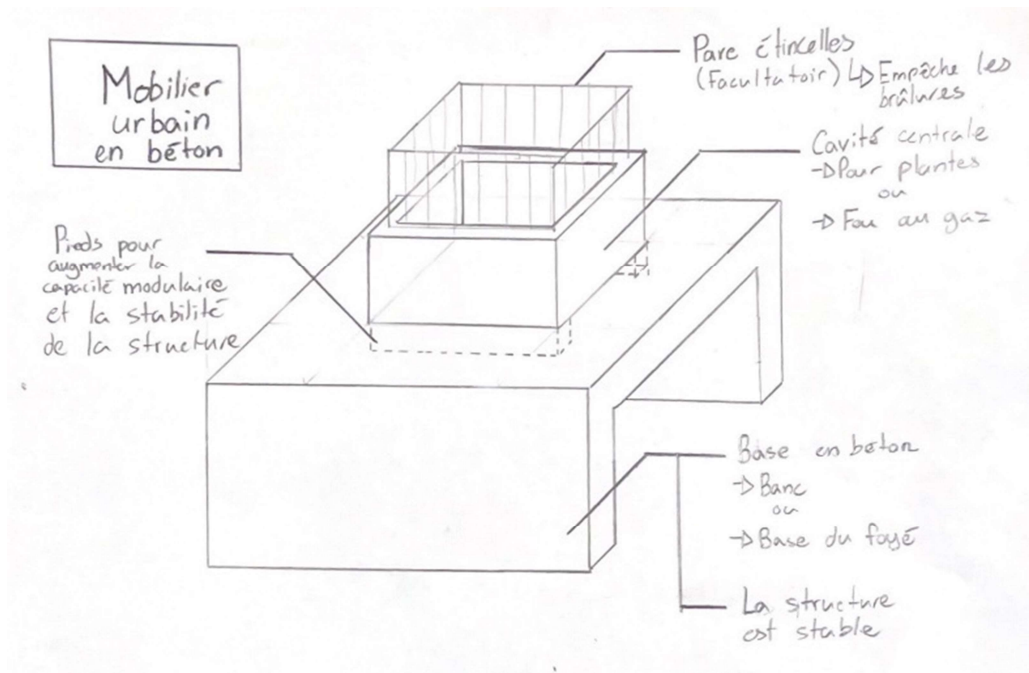 Mobilier
urbain
en béton
Pare étincelles
(Facultatoir) ↳ Empêche les
brûlures
Cavité centrale
→ Pour plantes
ou
→ Fou au gaz
Pieds pour
augmenter la
capacité modulaire
et la stabilité
de la structure
Base en béton
→ Banc
ou
→ Base du foyé
La structure
est stable